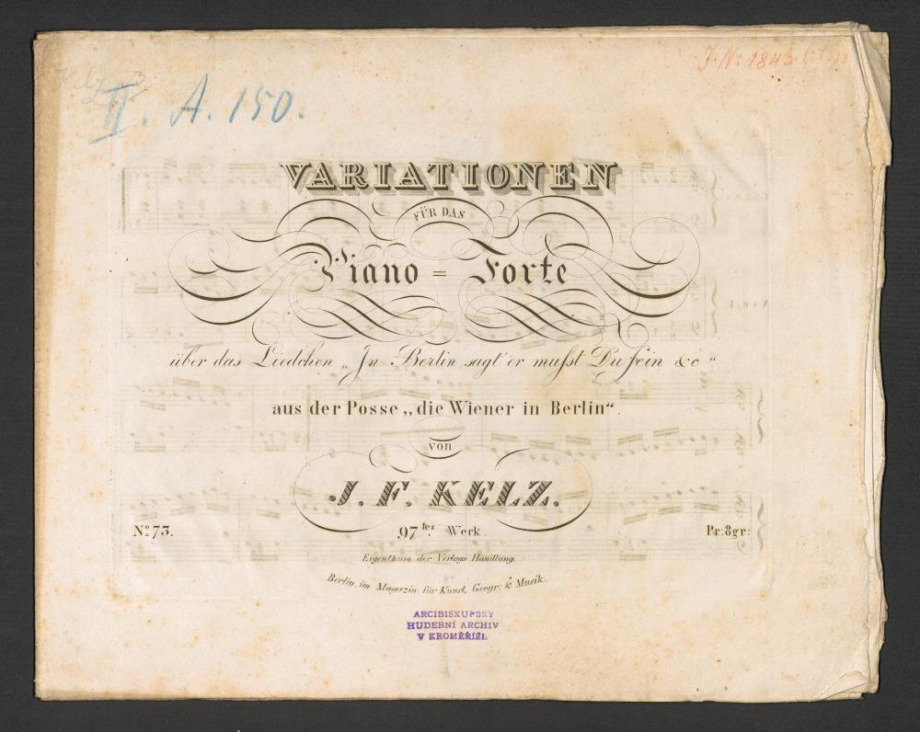 II. A. 150.
VARIATIONEN
FÜR DAS
Piano = Forte
über das Liedchen „Jn Berlin sagt' er mußst Du fein &c“
aus der Posse „die Wiener in Berlin“.
von
J. F. KELZ.
No. 73. 97tes Werk. Pr: 8gr:
Eigenthum der Verlags Handlung.
Berlin, im Magazin für Kunst, Geogr: & Musik.
ARCIBISKUPSKÝ
HUDEBNÍ ARCHIV
V KROMĚŘÍŽI.